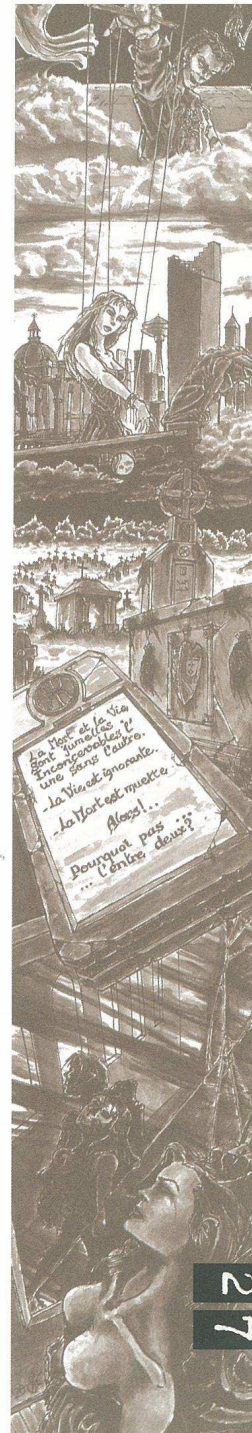 La Mort et la Vie
sont Jumelles !
Inconcevables l'
une sans l'autre.
La Vie est ignorante.
La Mort est muette
Alors!..
Pourquoi pas ...
... l'entre deux?
27